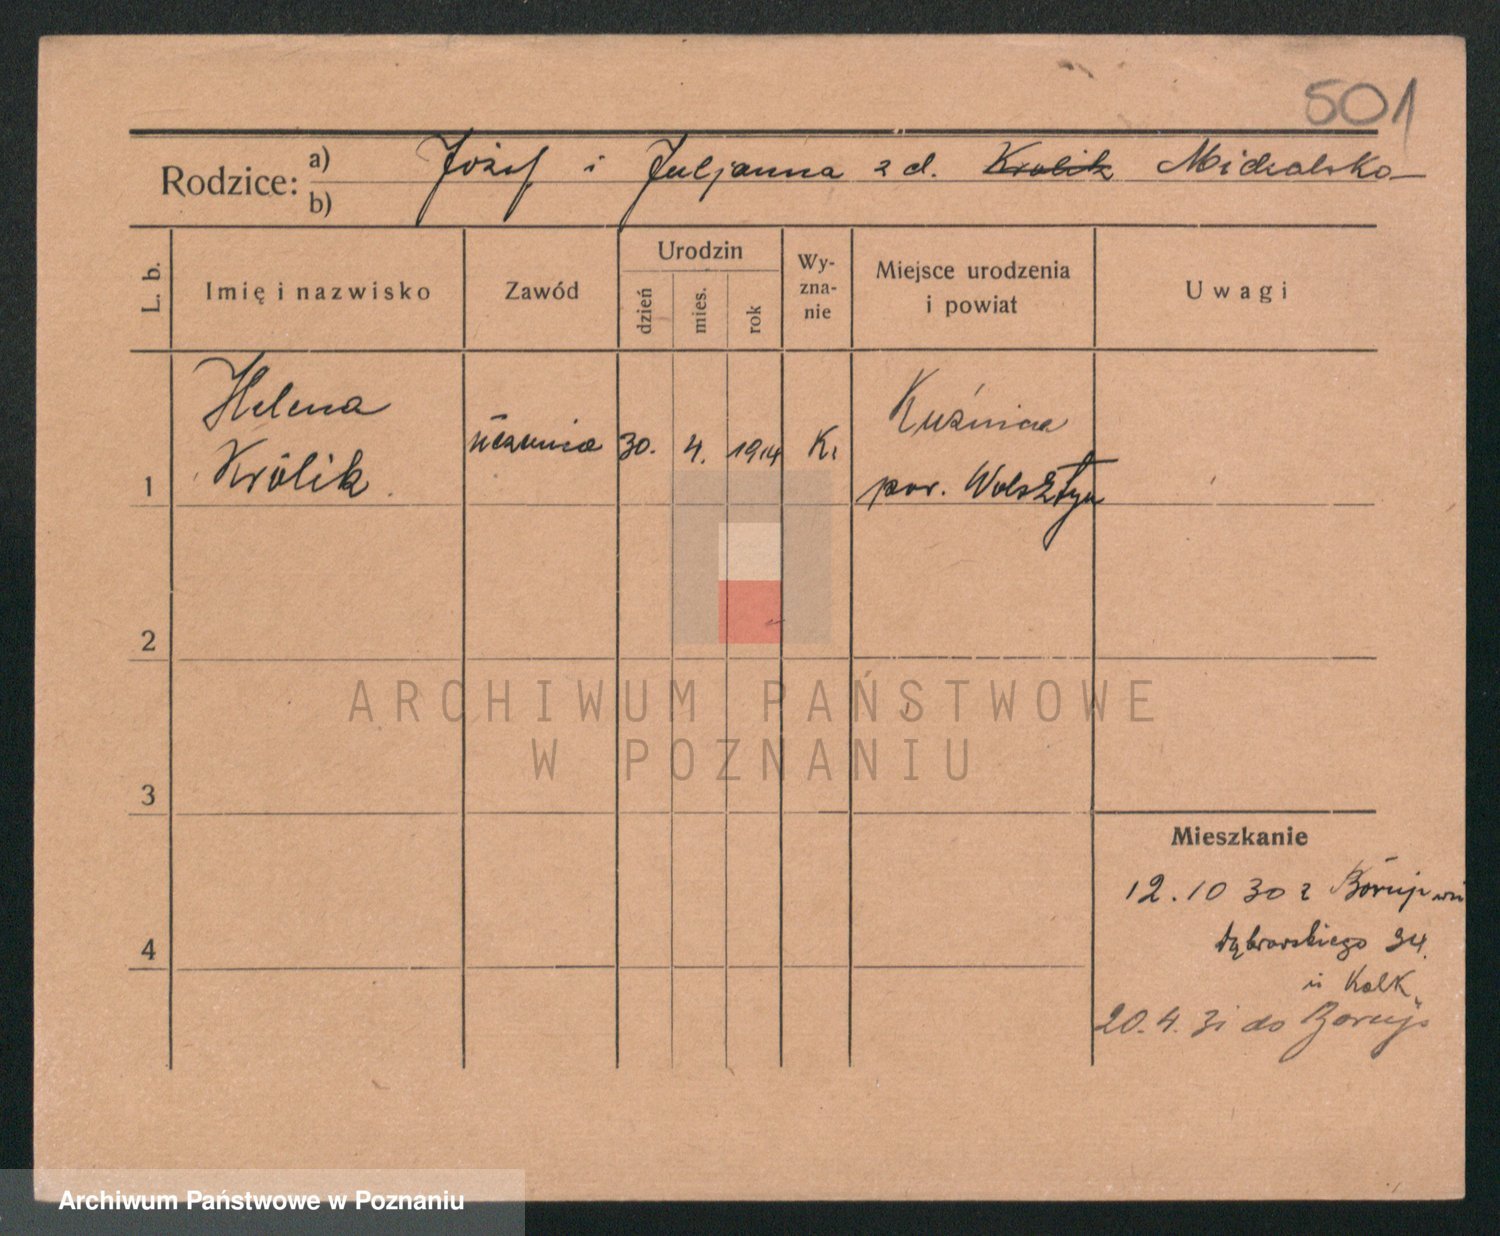 501
Rodzice: a) b) Józef i Juljanna z d. Królik
L. b. Imię i nazwisko Zawód Urodzin dzień mies. rok Wy-zna-nie Miejsce urodzenia i powiat Uwagi
Helena
Królik
uczenica 30. 4. 1914 K.
Kuźnica
pow. Wolsztyn
1
2
3
4
ARCHIWUM PAŃSTWOWE
W POZNANIU
Mieszkanie
12.10 30 z
Dąbrowskiego 34.
u
20.4.31 do Boruji
Archiwum Państwowe w Poznaniu